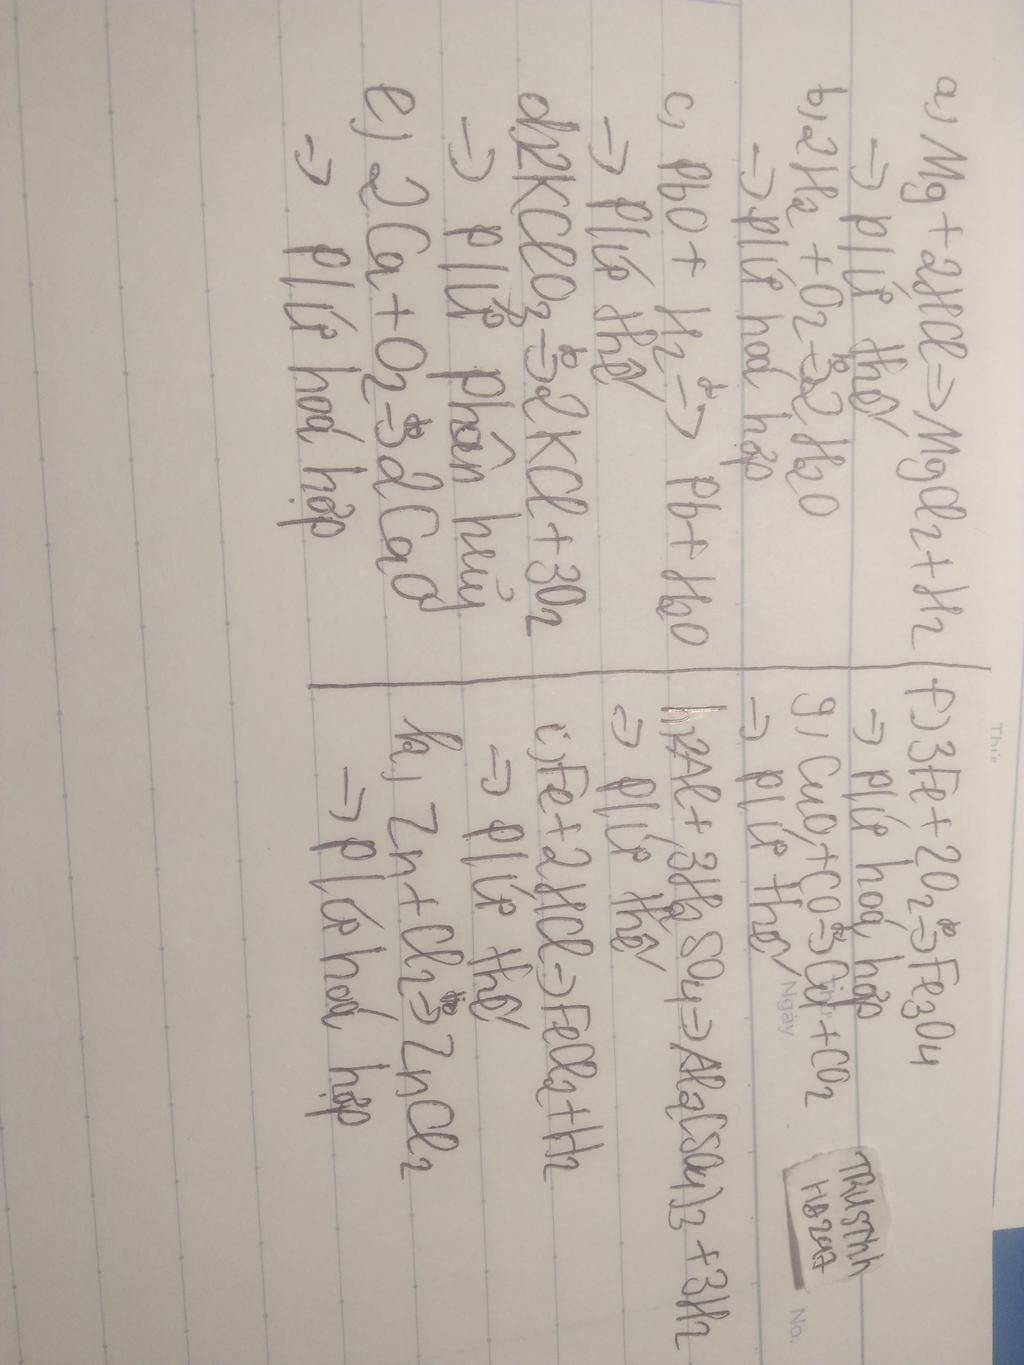 a, Mg + 2HCl → MgCl2 + H2
→ p/ứ thế
b, 2H2 + O2 →t° 2H2O
→ p/ứ hoá hợp
c, PbO + H2 →t° Pb + H2O
→ p/ứ thế
d, 2KClO3 →t° 2KCl + 3O2
→ p/ứ phân hủy
e, 2Ca + O2 →t° 2CaO
→ p/ứ hoá hợp
f, 3Fe + 2O2 →t° Fe3O4
→ p/ứ hoá hợp
g, CuO + CO →t° Cu + CO2
→ p/ứ thế
h, 2Al + 3H2SO4 → Al2(SO4)3 + 3H2
→ p/ứ thế
i, Fe + 2HCl → FeCl2 + H2
→ p/ứ thế
k, Zn + Cl2 →t° ZnCl2
→ p/ứ hoá hợp
Thứ
Ngày
No.